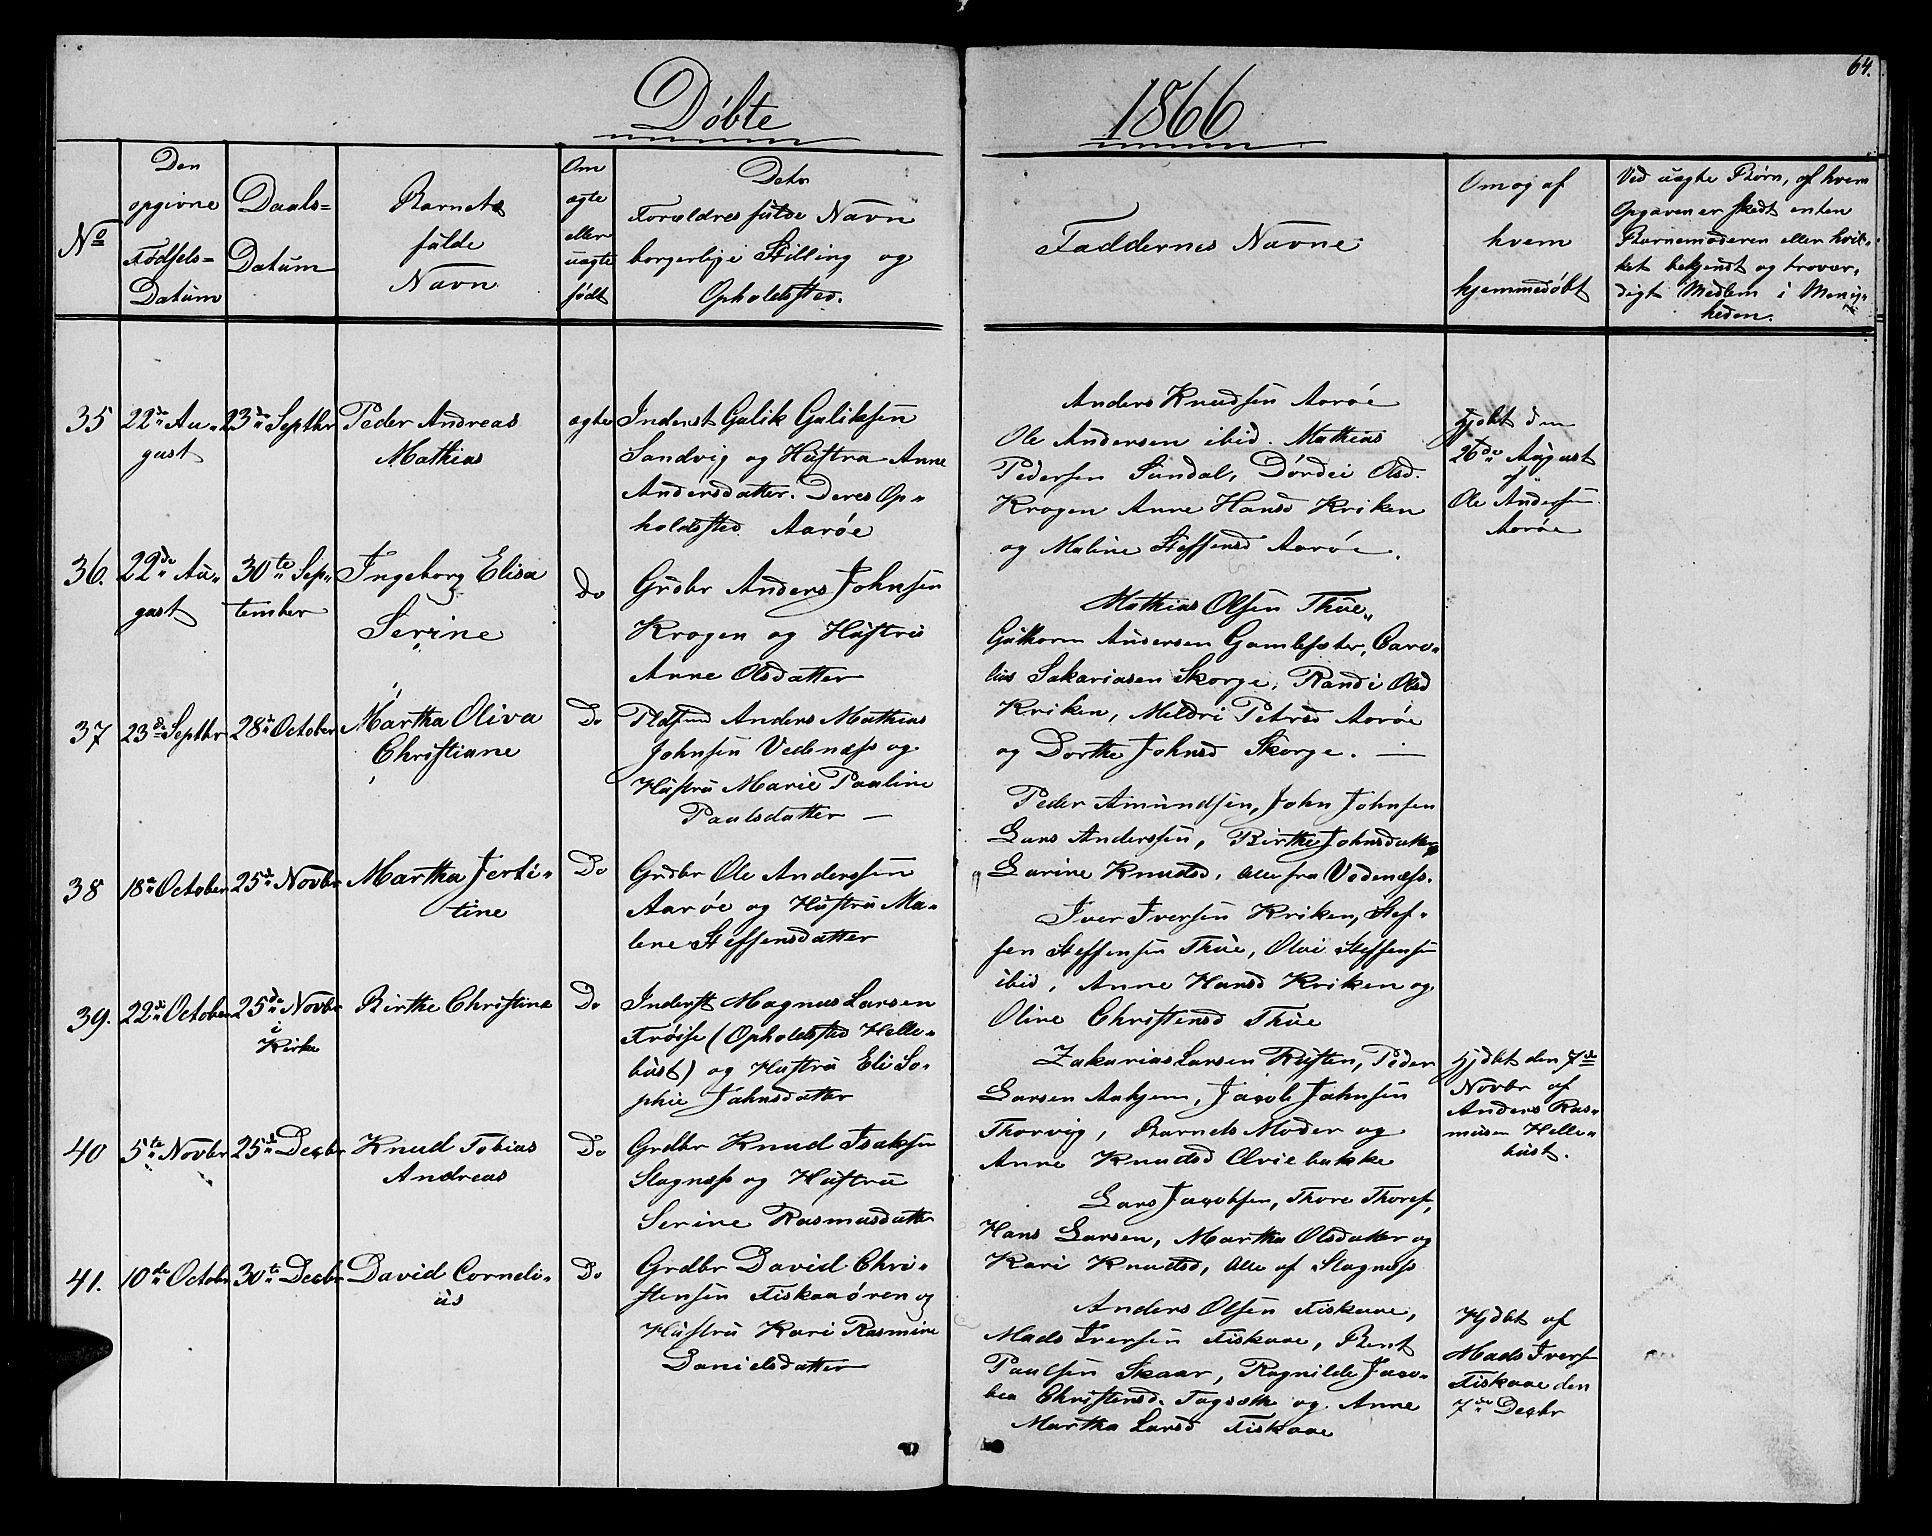 64.
Døbte
1866
No
Den
opgivne
Fødsels=
Datum
Daabs=
Datum
Barnets
fulde
Navn
Om
ægte
eller
uægte
født
Dets
Forældres fulde Navn
borgerlige Stilling og
Opholdsted.
Faddernes Navne
Om og af
hvem
hjemmedøbt
Ved uægte Børn, af hvem
Opgaven er skedt enten
Barnemoderen eller hvil-
ket bekjendt og trovær-
digt Medlem i Menig-
heden.
35
22de Au-
gust
23de Septbr
Peder Andreas
Mathias
ægte
Inderst Gulik Guliksen
Sandvig og Hustru Anne
Andersdatter. Deres Op-
holdsted Aarøe
Anders Knudsen Aarøe
Ole Andersen ibid. Mathias
Pedersen Sundal, Dordei Olsd.
Krogen Anne Hansd Kriken
og Maline Steffensd Aarøe.
Hjdbt den
26de August
af
Ole Andersen
Aarøe
36.
22de Au-
gust
30te Sep-
tember
Ingeborg Elisa
Serine
Do
Grdbr Anders Johnsen
Krogen og Hustru
Anne Olsdatter
Mathias Olsen Thue,
Guthorm Andersen Gamlesæter, Caro-
lius Sakariasen Skorge, Randi Olsd
Kriken, Meldri Petersd Aarøe
og Dorthe Johnsd Skorge. —
37
23de Septbr
28de October
Martha Oliva
Christiane
Do
Pladsmd Anders Mathias
Johnsen Vedenæss og
Hustru Marie Pauline
Paulsdatter —
Peder Amundsen, John Johnsen
Lars Anderssen, Birthe Johnsdatter,
Larine Knudsd, alle fra Vedenæss.
38
18de October
25de Novbr
Martha Jerti-
tine
Do
Grdbr Ole Anderssen
Aarøe og Hustru Ma-
lene Steffensdatter
Iver Iversen Kriken, Stef-
fen Steffensen Thue, Olai Steffensen
ibid, Anne Hansd Kriken og
Oline Christensd Thue
39.
22de October
25de Novbr
i
Kirke
Birthe Christine
Do
Inderst Magnus Larsen
Frøise (Opholdsted Helle-
bust) og Hustru Eli So-
phie Jahnsdatter
Zakarias Larsen Rusten, Peder
Larsen Aahjem, Jacob Jahnsen
Thorvig, Barnets Moder og
Anne Knudsd Ævie bakke
Hjdbt den 7de
Novbr af
Anders Ras-
musen Helle-
bust.
40
5te Novbr
25de Decbr
Knud Tobias
Andreas
Do
Grdbr Knud Isaksen
Slagnæss og Hustru
Serine Rasmusdatter
Lars Jacobsen, Thore Thores,
Hans Larsen, Martha Olsdatter og
Kari Knudsd, alle af Slagnæss
41.
10de Octobr
30te Decbr
David Corneli-
us
Do
Grdbr David Chri-
stensen Fiskaaøren og
Hustru Kari Rasmine
Danielsdatter
Anders Olsen Fiskaae,
Mads Iversen Fiskaae, Bent
Paulsen Skaar, Ragnilde Jaco-
bea Christensd. Fagsæth og Anne
Martha Larsd Fiskaae
Hjdbt af
Mads Iversen
Fiskaae den
7de Decbr